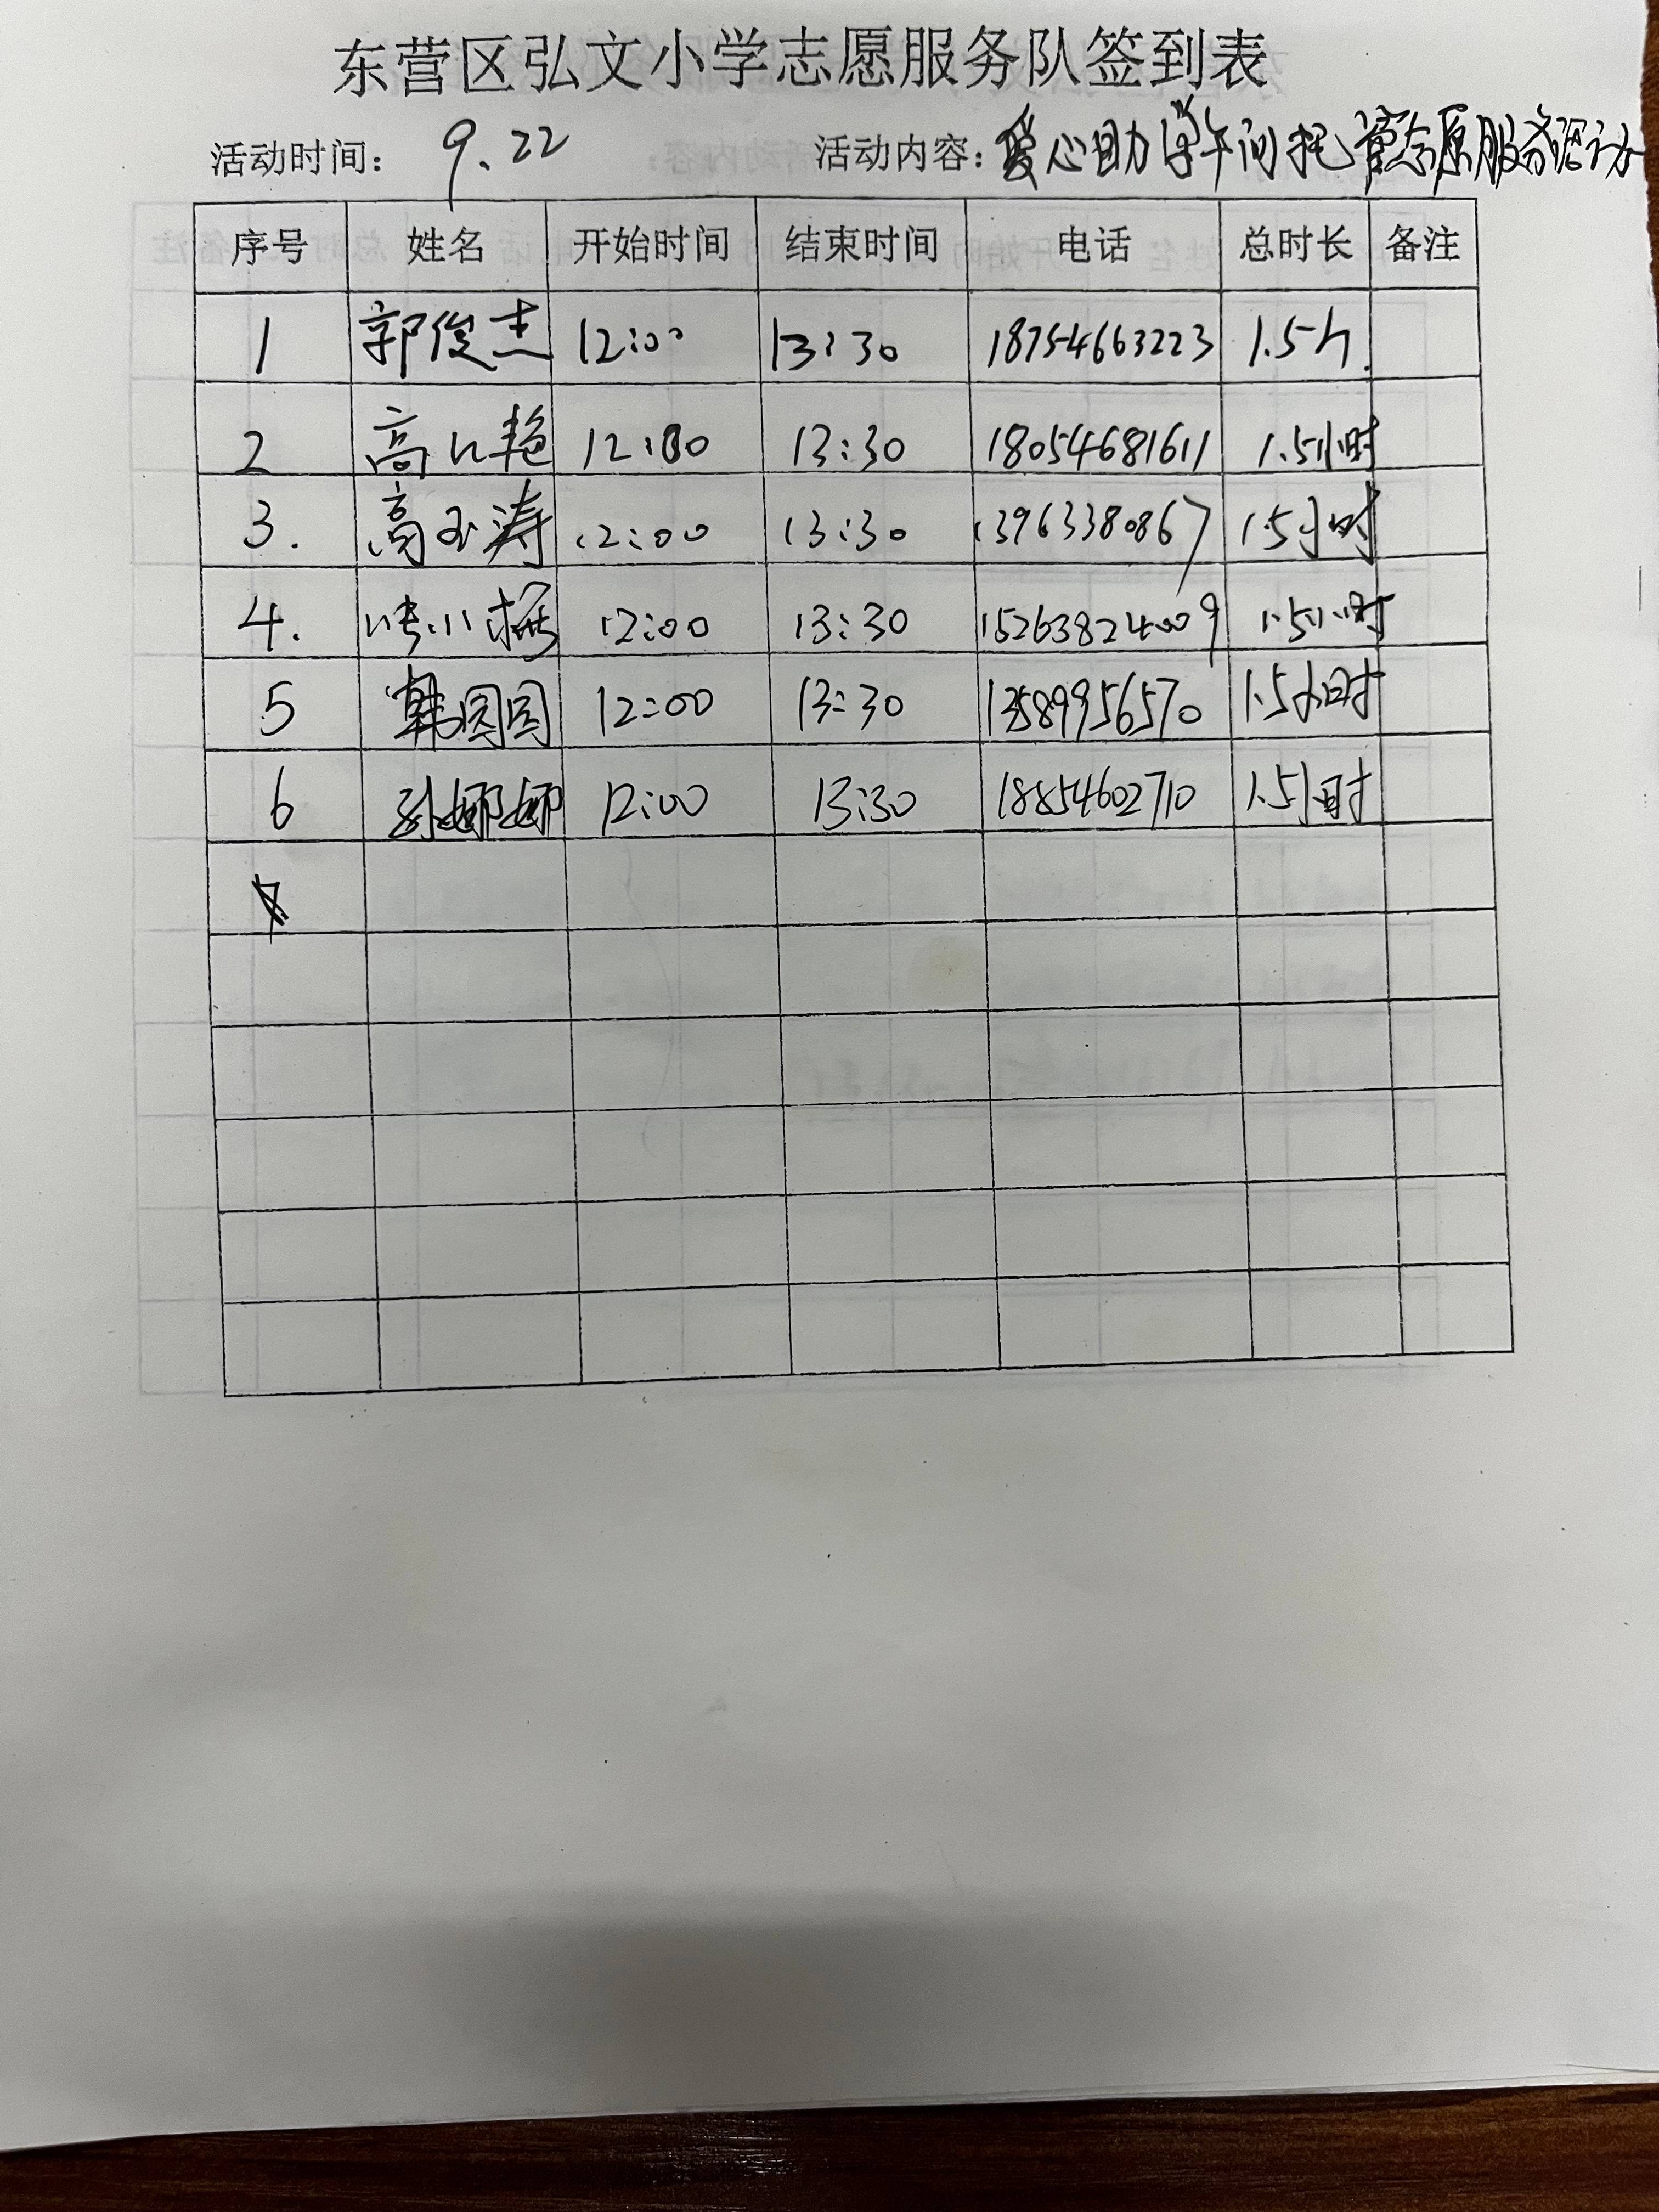 东营区弘文小学志愿服务队签到表
活动时间: 9.22 活动内容: 爱心助学午间托管志愿服务活动
序号 姓名 开始时间 结束时间 电话 总时长 备注
1 郭俊杰 12:00 13:30 18754663223 1.5h.
2 高 艳 12:00 13:30 18054681611 1.5小时
3. 高玉涛 12:00 13:30 13963380867 1.5小时
4. 12:00 13:30 15263824009 1.5小时
5 韩园园 12:00 13:30 13589956570 1.5小时
6 孙娜娜 12:00 13:30 18854602710 1.5小时